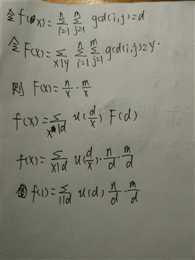 令f(x)=∑_{i=1}^{n}∑_{j=1}^{m} gcd(i,j)=d
令F(x)=∑_{x|y}∑_{i=1}^{n}∑_{j=1}^{m} gcd(i,j)=y.
则 F(x)=n/x·m/x
f(x)=∑_{x|d} u(d/x) F(d)
f(x)=∑_{x|d} u(d/x)·n/d·m/d
f(1)=∑_{1|d} u(d) n/d·m/d